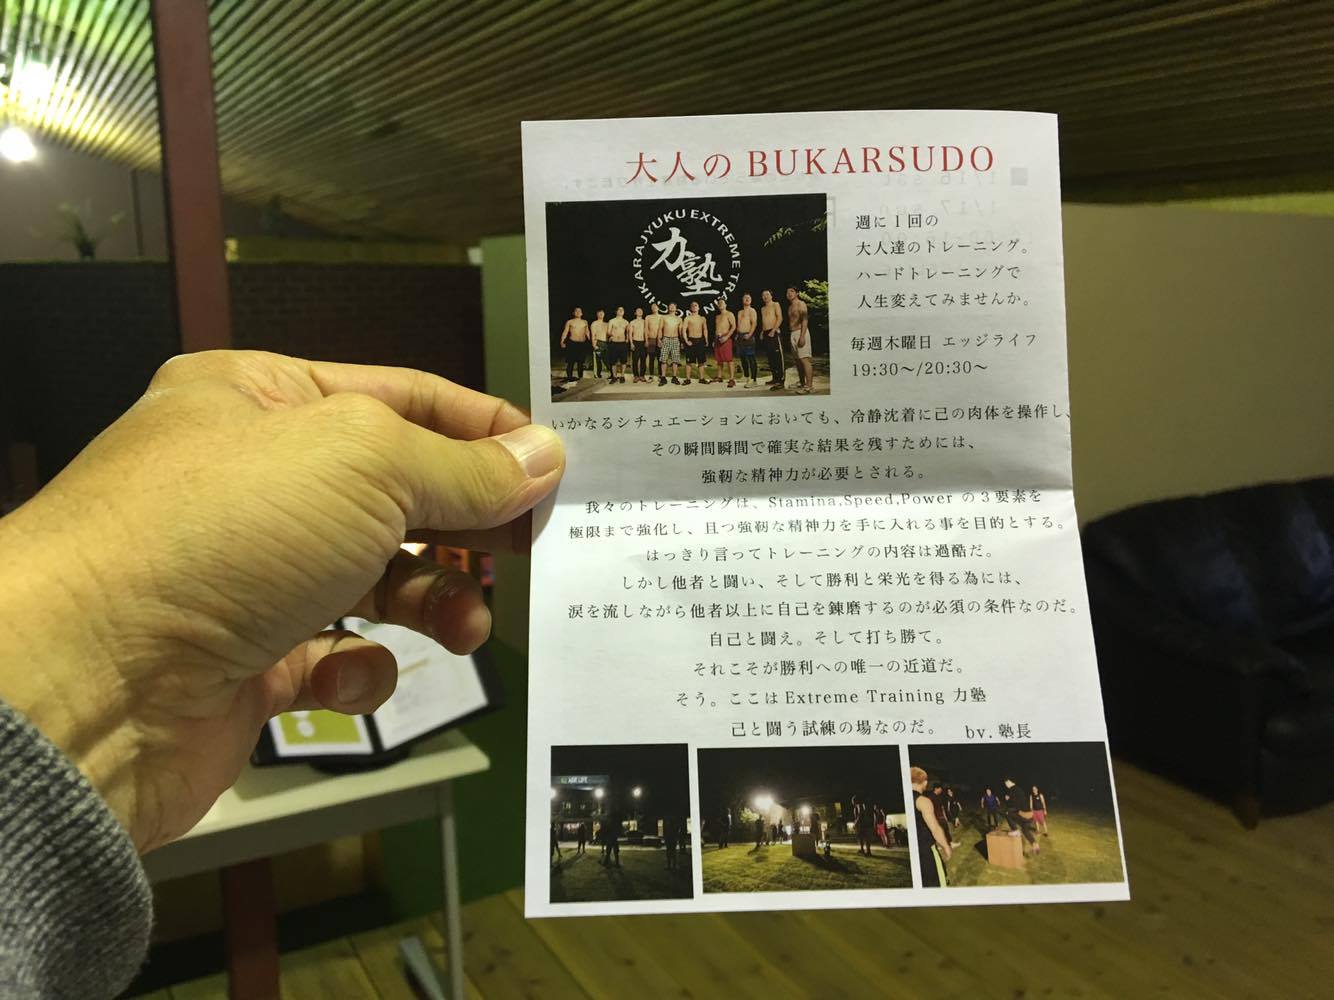 大人のBUKARSUDO
CHIKARAJYUKU EXTREME TRAINING
力塾
週に1回の
大人達のトレーニング。
ハードトレーニングで
人生変えてみませんか。
毎週木曜日 エッジライフ
19:30〜/20:30〜
いかなるシチュエーションにおいても、冷静沈着に己の肉体を操作し、
その瞬間瞬間で確実な結果を残すためには、
強靭な精神力が必要とされる。
我々のトレーニングは、Stamina,Speed,Power の3要素を
極限まで強化し、且つ強靭な精神力を手に入れる事を目的とする。
はっきり言ってトレーニングの内容は過酷だ。
しかし他者と闘い、そして勝利と栄光を得る為には、
涙を流しながら他者以上に自己を錬磨するのが必須の条件なのだ。
自己と闘え。そして打ち勝て。
それこそが勝利への唯一の近道だ。
そう。ここはExtreme Training 力塾
己と闘う試練の場なのだ。 by.塾長